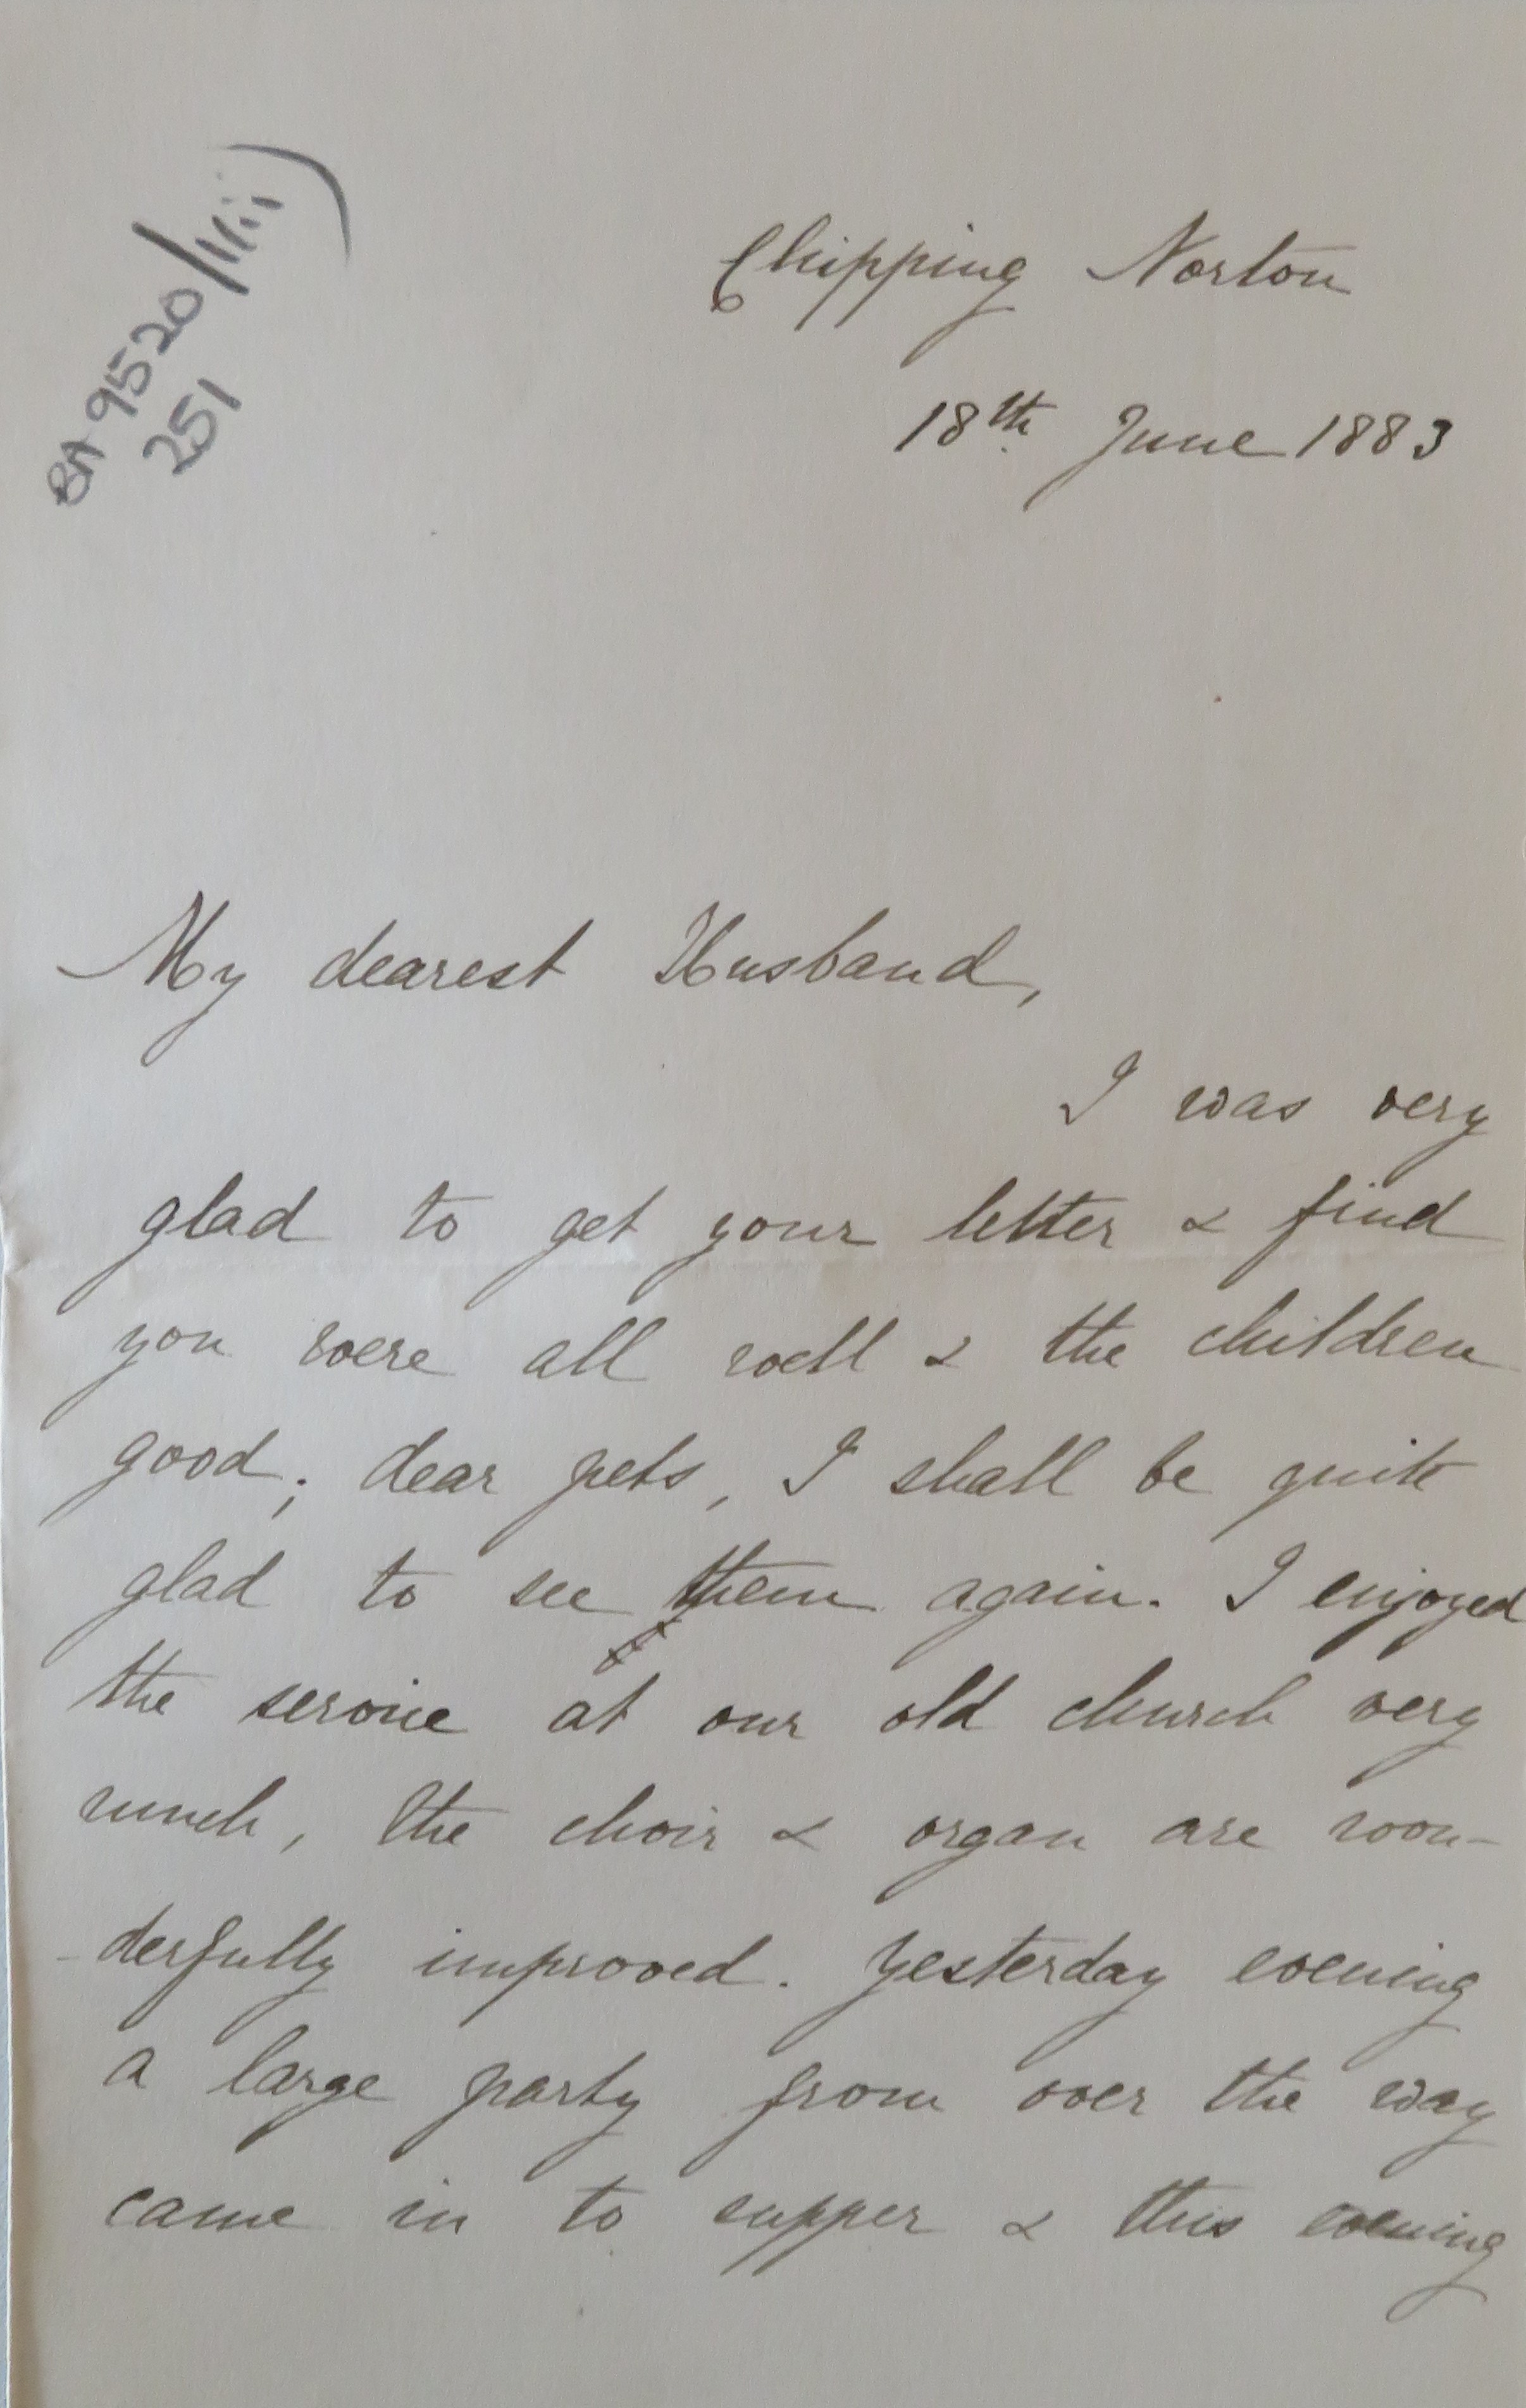 BA 9520/1(iii)
251
Chipping Norton
18th June 1883
My dearest Husband,
I was very
glad to get your letter & find
you were all well & the children
good; dear pets, I shall be quite
glad to see them again. I enjoyed
the service at our old church very
much, the choir & organ are won-
-derfully improved. Yesterday evening
a large party from over the way
came in to supper & this evening